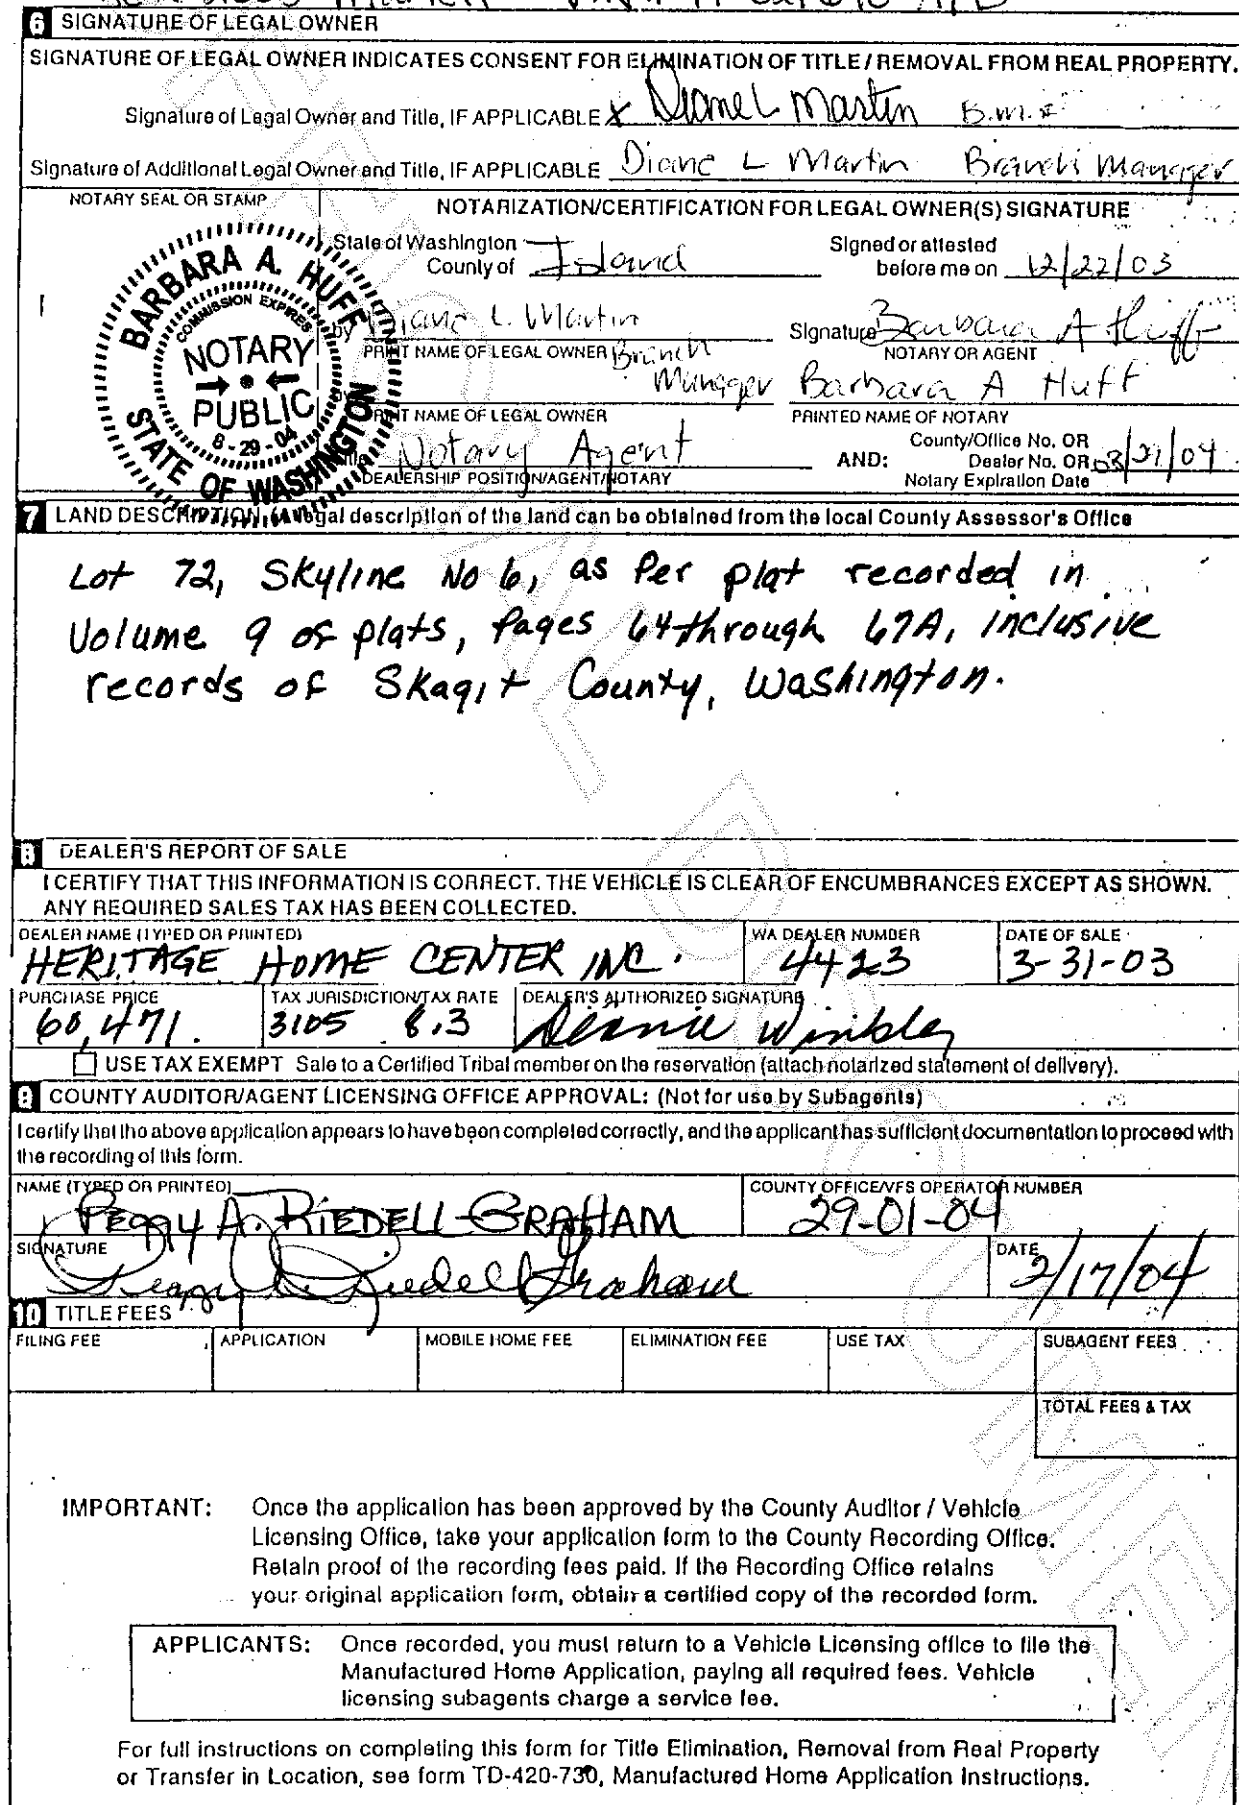 6 SIGNATURE OF LEGAL OWNER
SIGNATURE OF LEGAL OWNER INDICATES CONSENT FOR ELIMINATION OF TITLE / REMOVAL FROM REAL PROPERTY.
Signature of Legal Owner and Title, IF APPLICABLE X Diane L Martin
Signature of Additional Legal Owner and Title, IF APPLICABLE Diane L Martin Branch Manager
NOTARY SEAL OR STAMP
NOTARIZATION/CERTIFICATION FOR LEGAL OWNER(S) SIGNATURE
BARBARA A. HUFF
COMMISSION EXPIRES
NOTARY
PUBLIC
8-29-04
STATE OF WASHINGTON
State of Washington
County of Island
Signed or attested
before me on 12/22/03
by Diane L. Martin
PRINT NAME OF LEGAL OWNER Branch Manager
Signature Barbara A Huff
NOTARY OR AGENT
Barbara A Huff
PRINT NAME OF LEGAL OWNER
PRINTED NAME OF NOTARY
Notary Agent
DEALERSHIP POSITION/AGENT/NOTARY
AND:
County/Office No. OR
Dealer No. OR
Notary Expiration Date
7 LAND DESCRIPTION (A legal description of the land can be obtained from the local County Assessor's Office
Lot 72, Skyline No 6, as Per plat recorded in
Volume 9 of plats, Pages 64 through 67A, inclusive
records of Skagit County, Washington.
8 DEALER'S REPORT OF SALE
I CERTIFY THAT THIS INFORMATION IS CORRECT. THE VEHICLE IS CLEAR OF ENCUMBRANCES EXCEPT AS SHOWN.
ANY REQUIRED SALES TAX HAS BEEN COLLECTED.
DEALER NAME (TYPED OR PRINTED) WA DEALER NUMBER DATE OF SALE
HERITAGE HOME CENTER INC. 4423 3-31-03
PURCHASE PRICE TAX JURISDICTION/TAX RATE DEALER'S AUTHORIZED SIGNATURE
60,471. 3105 8.3 Deanie Winkler
USE TAX EXEMPT Sale to a Certified Tribal member on the reservation (attach notarized statement of delivery).
9 COUNTY AUDITOR/AGENT LICENSING OFFICE APPROVAL: (Not for use by Subagents)
I certify that the above application appears to have been completed correctly, and the applicant has sufficient documentation to proceed with
the recording of this form.
NAME (TYPED OR PRINTED) COUNTY OFFICE/VFS OPERATOR NUMBER
PEGGY A. RIEDELL-GRAHAM 29-01-04
SIGNATURE DATE
Peggy A. Riedell Graham 2/17/04
10 TITLE FEES
FILING FEE APPLICATION MOBILE HOME FEE ELIMINATION FEE USE TAX SUBAGENT FEES
TOTAL FEES & TAX
IMPORTANT: Once the application has been approved by the County Auditor / Vehicle
Licensing Office, take your application form to the County Recording Office.
Retain proof of the recording fees paid. If the Recording Office retains
your original application form, obtain a certified copy of the recorded form.
APPLICANTS: Once recorded, you must return to a Vehicle Licensing office to file the
Manufactured Home Application, paying all required fees. Vehicle
licensing subagents charge a service fee.
For full instructions on completing this form for Title Elimination, Removal from Real Property
or Transfer in Location, see form TD-420-730, Manufactured Home Application Instructions.